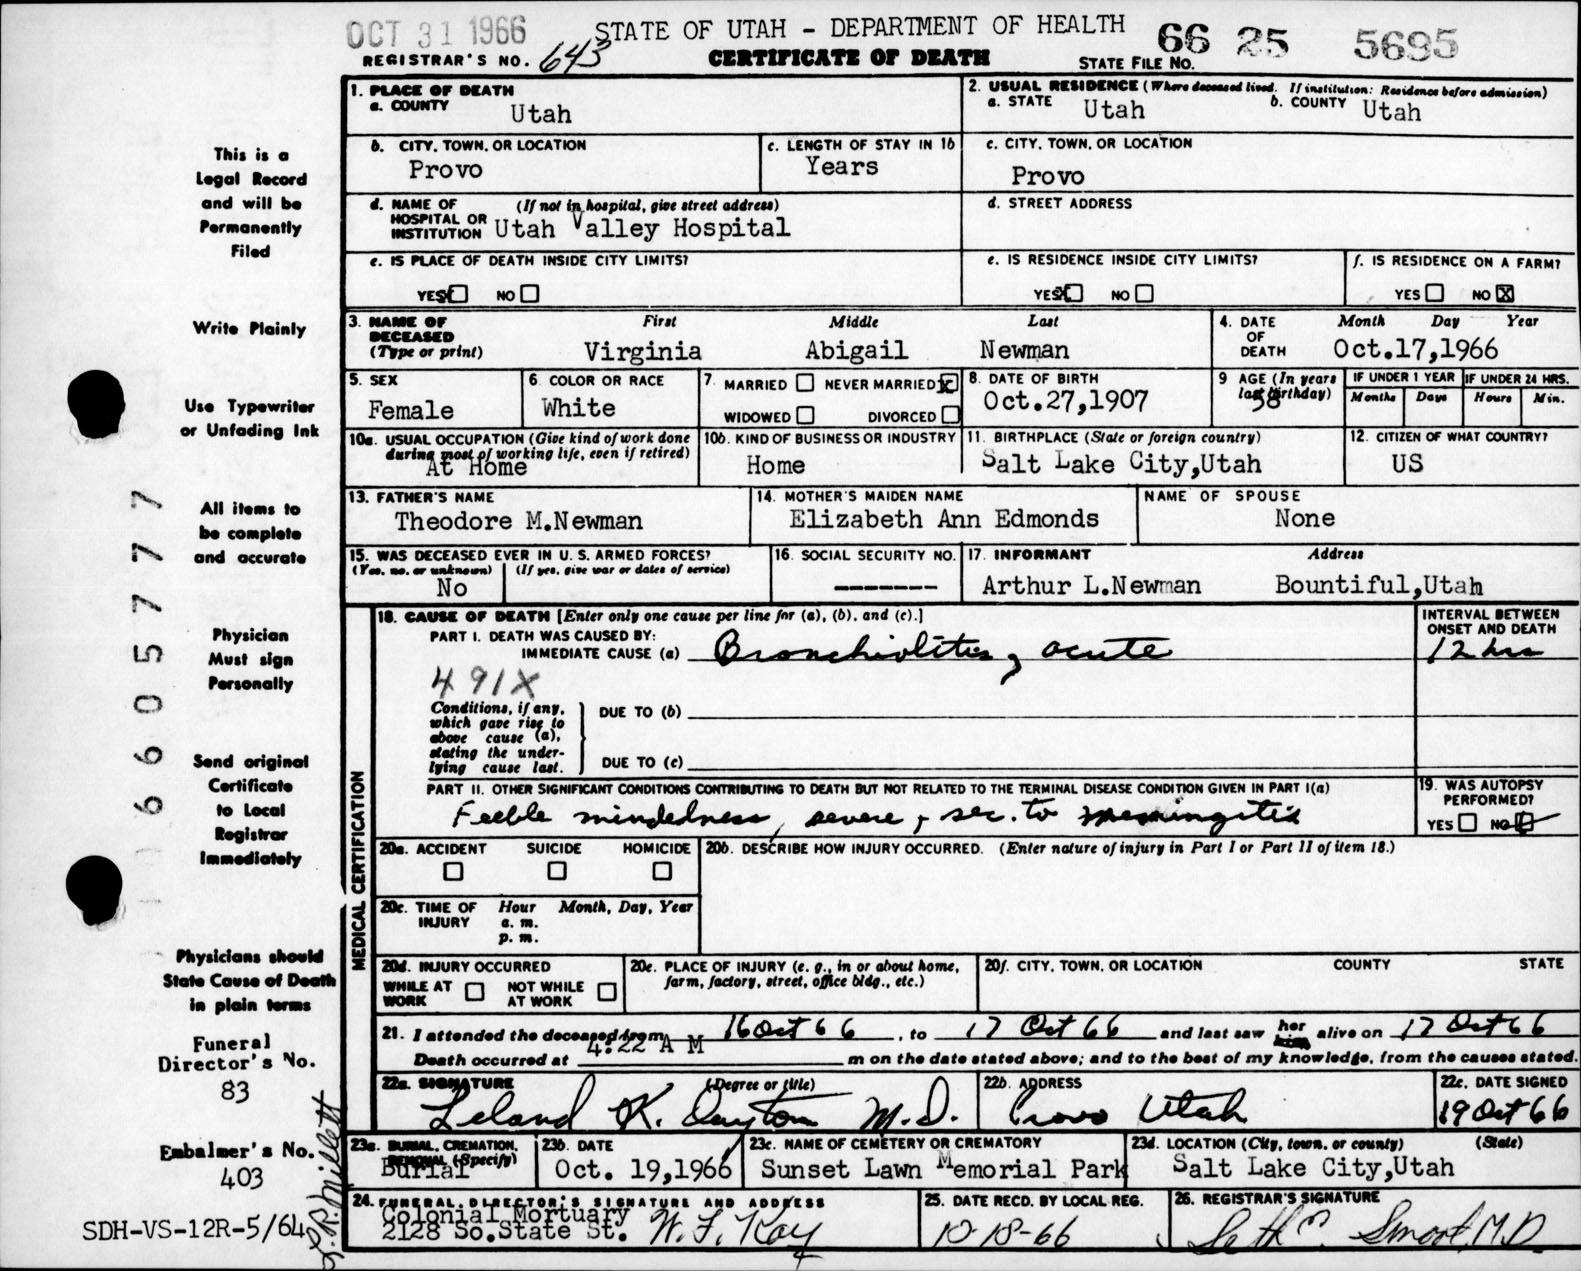 OCT 31 1966 STATE OF UTAH - DEPARTMENT OF HEALTH 66 25 5695
REGISTRAR'S NO. 643 CERTIFICATE OF DEATH STATE FILE NO.
This is a
Legal Record
and will be
Permanently
Filed
Write Plainly
Use Typewriter
or Unfading Ink
All items to
be complete
and accurate
Physician
Must sign
Personally
Send original
Certificate
to Local
Registrar
Immediately
Physicians should
State Cause of Death
in plain terms
Funeral
Director's No.
83
Embalmer's No.
403
SDH-VS-12R-5/64
6605777
1. PLACE OF DEATH
a. COUNTY Utah
2. USUAL RESIDENCE (Where deceased lived. If institution: Residence before admission)
a. STATE Utah b. COUNTY Utah
b. CITY, TOWN, OR LOCATION
Provo
c. LENGTH OF STAY IN 1b
Years
c. CITY, TOWN, OR LOCATION
Provo
d. NAME OF (If not in hospital, give street address)
HOSPITAL OR
INSTITUTION Utah Valley Hospital
d. STREET ADDRESS
e. IS PLACE OF DEATH INSIDE CITY LIMITS?
YES X NO
e. IS RESIDENCE INSIDE CITY LIMITS?
YES X NO
f. IS RESIDENCE ON A FARM?
YES NO X
3. NAME OF DECEASED (Type or print)
First Middle Last
Virginia Abigail Newman
4. DATE OF DEATH Month Day Year
Oct.17,1966
5. SEX
Female
6. COLOR OR RACE
White
7. MARRIED NEVER MARRIED X
WIDOWED DIVORCED
8. DATE OF BIRTH
Oct.27,1907
9 AGE (In years last birthday)
58
IF UNDER 1 YEAR IF UNDER 24 HRS.
Months Days Hours Min.
10a. USUAL OCCUPATION (Give kind of work done
during most of working life, even if retired)
At Home
10b. KIND OF BUSINESS OR INDUSTRY
Home
11. BIRTHPLACE (State or foreign country)
Salt Lake City,Utah
12. CITIZEN OF WHAT COUNTRY?
US
13. FATHER'S NAME
Theodore M.Newman
14. MOTHER'S MAIDEN NAME
Elizabeth Ann Edmonds
NAME OF SPOUSE
None
15. WAS DECEASED EVER IN U. S. ARMED FORCES?
(Yes, no, or unknown) (If yes, give war or dates of service)
No
16. SOCIAL SECURITY NO.
-------
17. INFORMANT Address
Arthur L.Newman Bountiful,Utah
MEDICAL CERTIFICATION
18. CAUSE OF DEATH [Enter only one cause per line for (a), (b), and (c).]
PART I. DEATH WAS CAUSED BY:
IMMEDIATE CAUSE (a) Bronchiolitis, acute
INTERVAL BETWEEN
ONSET AND DEATH
12 hrs
491X
Conditions, if any,
which gave rise to
above cause (a),
stating the under-
lying cause last.
DUE TO (b)
DUE TO (c)
PART II. OTHER SIGNIFICANT CONDITIONS CONTRIBUTING TO DEATH BUT NOT RELATED TO THE TERMINAL DISEASE CONDITION GIVEN IN PART I(a)
Feeble mindedness, severe, sec. to meningitis
19. WAS AUTOPSY
PERFORMED?
YES NO
20a. ACCIDENT SUICIDE HOMICIDE
20b. DESCRIBE HOW INJURY OCCURRED. (Enter nature of injury in Part I or Part II of item 18.)
20c. TIME OF INJURY Hour Month, Day, Year
a. m.
p. m.
20d. INJURY OCCURRED
WHILE AT WORK NOT WHILE AT WORK
20e. PLACE OF INJURY (e. g., in or about home,
farm, factory, street, office bldg., etc.)
20f. CITY, TOWN, OR LOCATION COUNTY STATE
21. I attended the deceased from 16 Oct 66, to 17 Oct 66 and last saw her him alive on 17 Oct 66
Death occurred at 4:22 A M m on the date stated above; and to the best of my knowledge, from the causes stated.
22a. SIGNATURE (Degree or title)
Leland K. Dayton M.D.
22b. ADDRESS
Provo Utah
22c. DATE SIGNED
19 Oct 66
23a. BURIAL, CREMATION,
REMOVAL (Specify)
Burial
23b. DATE
Oct. 19,1966
23c. NAME OF CEMETERY OR CREMATORY
Sunset Lawn Memorial Park
23d. LOCATION (City, town, or county) (State)
Salt Lake City,Utah
24. FUNERAL DIRECTOR'S SIGNATURE AND ADDRESS
Colonial Mortuary
2128 So.State St. W. F. Kay
25. DATE RECD. BY LOCAL REG.
10-18-66
26. REGISTRAR'S SIGNATURE
Seth Smoot, M.D.